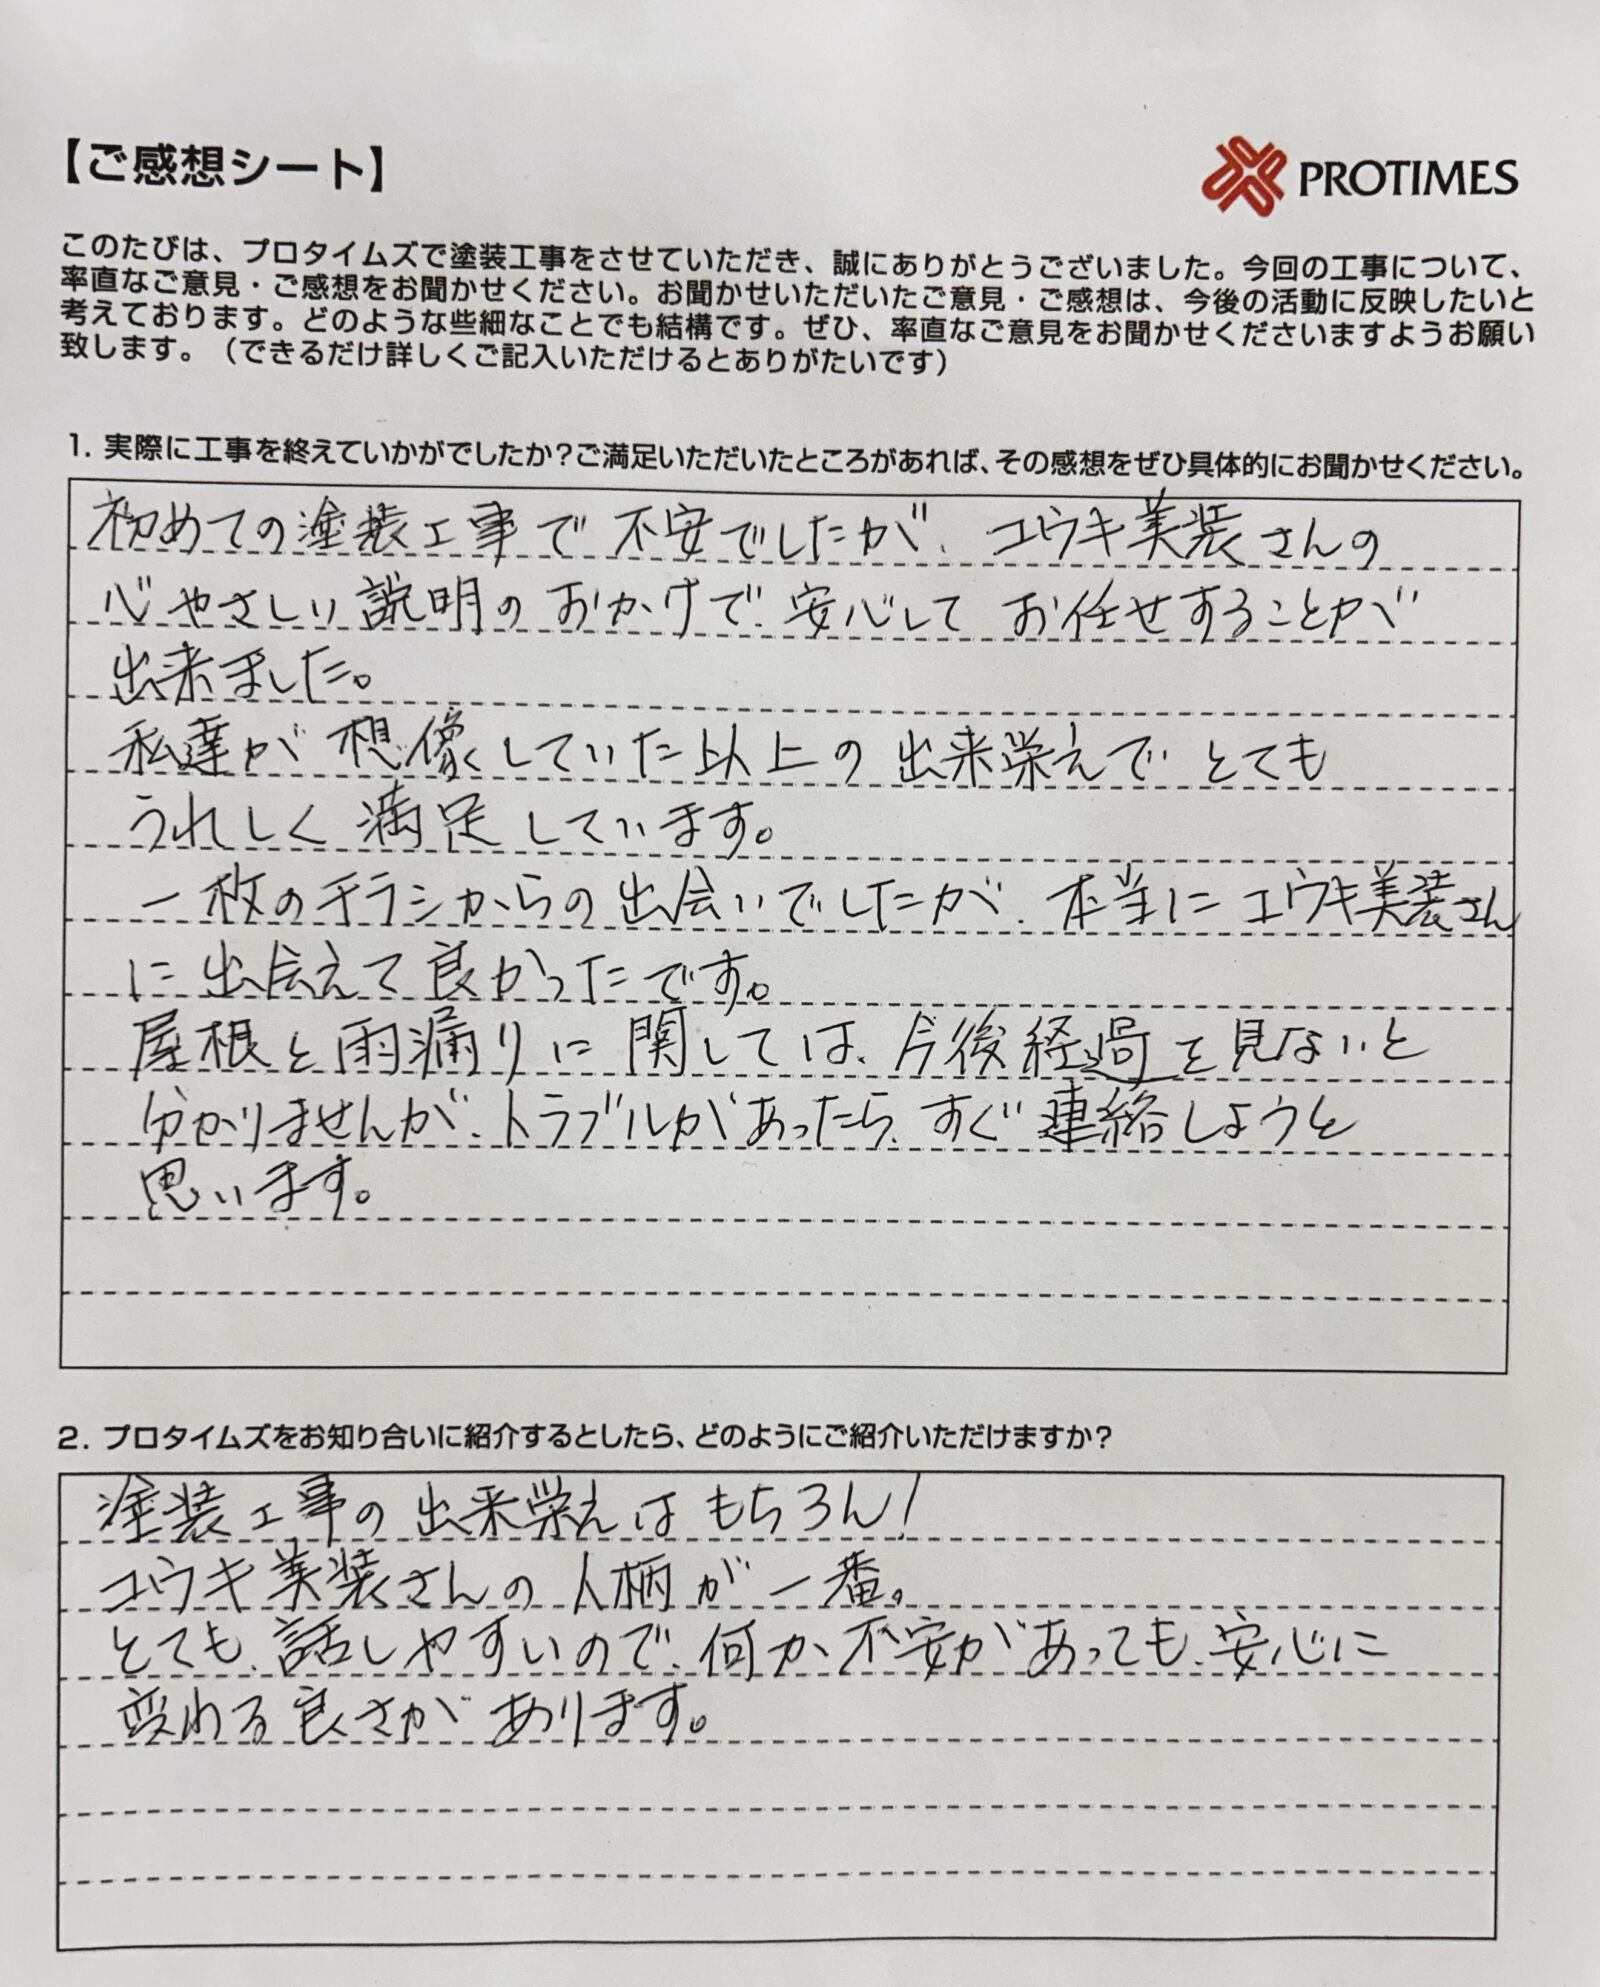 【ご感想シート】
PROTIMES
このたびは、プロタイムズで塗装工事をさせていただき、誠にありがとうございました。今回の工事について、
率直なご意見・ご感想をお聞かせください。お聞かせいただいたご意見・ご感想は、今後の活動に反映したいと
考えております。どのような些細なことでも結構です。ぜひ、率直なご意見をお聞かせくださいますようお願い
致します。（できるだけ詳しくご記入いただけるとありがたいです）
1. 実際に工事を終えていかがでしたか？ご満足いただいたところがあれば、その感想をぜひ具体的にお聞かせください。
初めての塗装工事で不安でしたが、ユウキ美装さんの
心やさしい説明のおかげで、安心してお任せすることが
出来ました。
私達が想像していた以上の出来栄えでとても
うれしく満足しています。
一枚のチラシからの出会いでしたが、本当にユウキ美装さん
に出会えて良かったです。
屋根と雨漏りに関しては、今後経過を見ないと
分かりませんが、トラブルがあったら、すぐ連絡しようと
思います。
2. プロタイムズをお知り合いに紹介するとしたら、どのようにご紹介いただけますか？
塗装工事の出来栄えはもちろん！
ユウキ美装さんの人柄が一番。
とても、話しやすいので、何か不安があっても、安心に
変わる良さがあります。